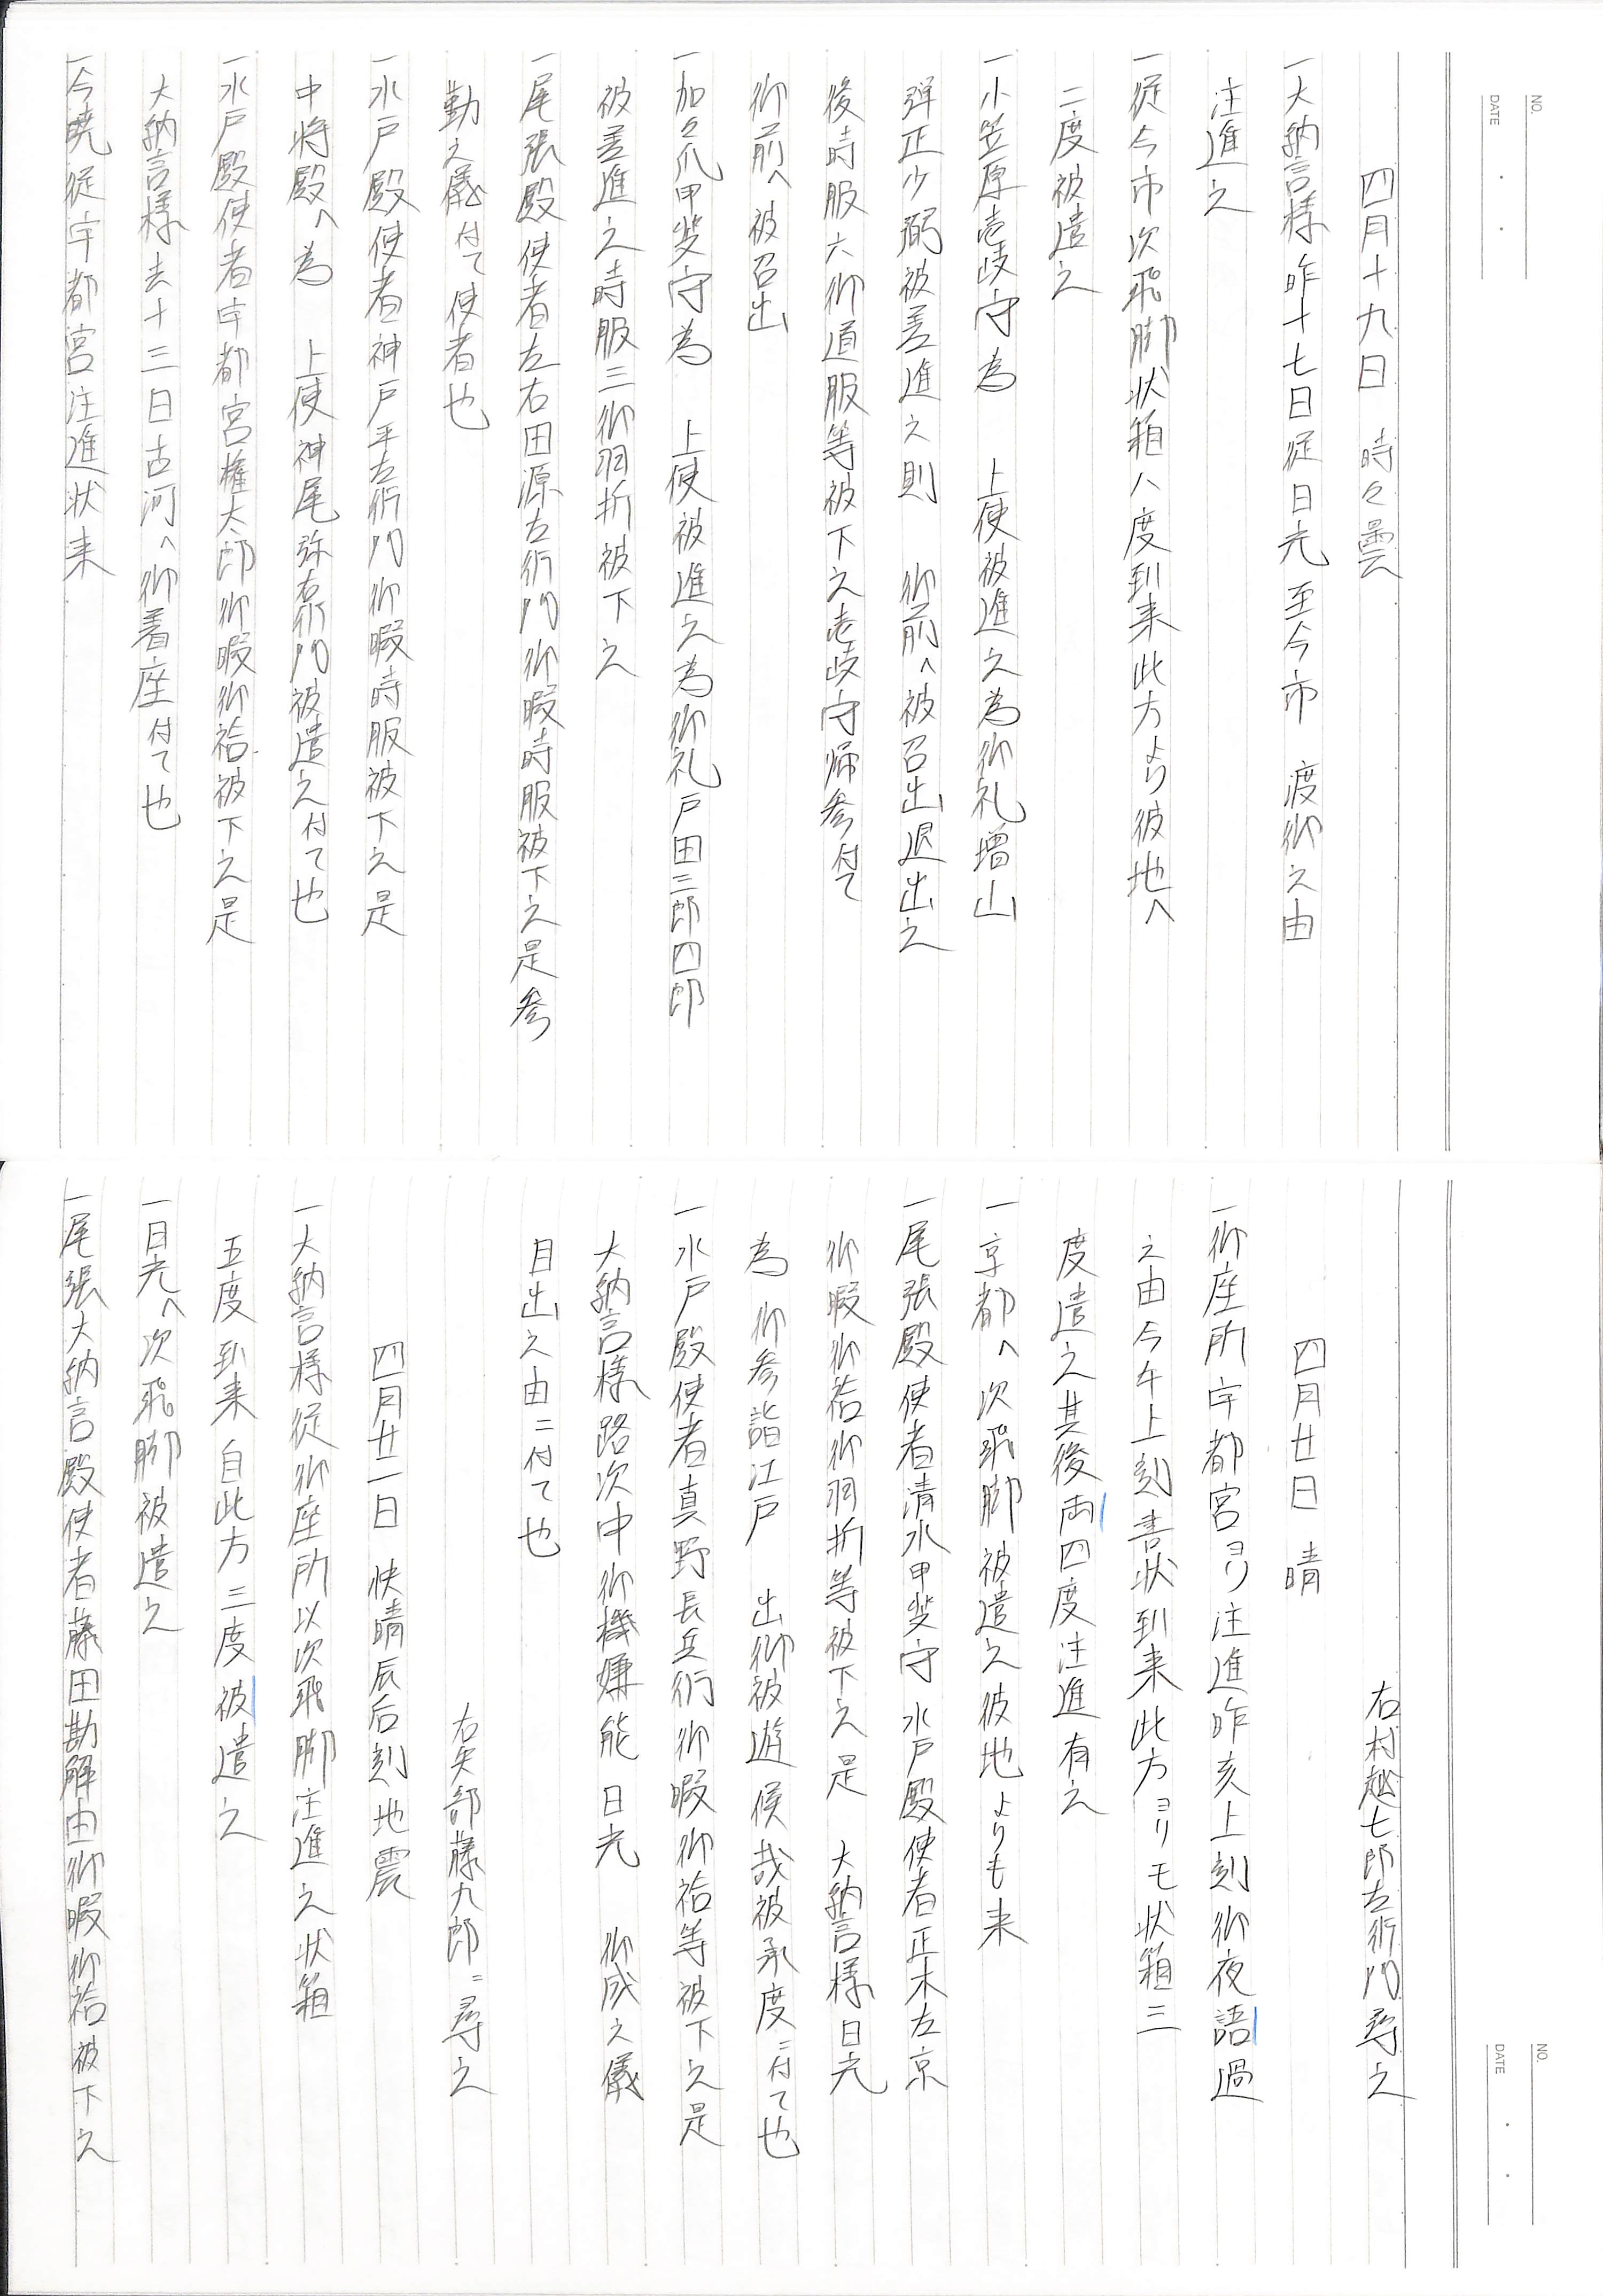 NO.
DATE
四月十九日 時々曇
一大納言様昨十七日従日光至今市 渡御之由
注進之
一従今市次飛脚状箱八度到来此方より彼地へ
二度被遣之
一小笠原壱岐守為 上使被進之為御礼増山
弾正少弼被差進之則 御前へ被召出退出之
後時服六御道服等被下之壱岐守帰参付て
御前へ被召出
一加々爪甲斐守為 上使被進之為御礼戸田三郎四郎
被差進之時服三御羽折被下之
一尾張殿使者左右田源左衛門御暇時服被下之是参
勤之儀付て使者也
一水戸殿使者神戸平左衛門御暇時服被下之是
中将殿へ為 上使神尾弥右衛門被遣之付て也
一水戸殿使者宇都宮権太郎御暇御袷被下之是
大納言様去十三日古河へ御着座付て也
一今暁従宇都宮注進状来
NO.
DATE
右村越七郎左衛門尋之
四月廿日 晴
一御座所宇都宮ヨリ注進昨亥上刻御夜語過
之由今午上刻書状到来此方ヨリモ状箱三
度遣之其後両四度注進有之
一京都へ次飛脚被遣之彼地よりも来
一尾張殿使者清水甲斐守水戸殿使者正木左京
御暇御袷御羽折等被下之是 大納言様日光
為 御参詣江戸 出御被遊候哉被承度ニ付て也
一水戸殿使者真野長兵衛御暇御袷等被下之是
大納言様路次中御機嫌能日光 御成之儀
目出之由ニ付て也
右矢部藤九郎ニ尋之
四月廿一日 快晴辰后刻地震
一大納言様従御座所以次飛脚注進之状箱
五度到来自此方三度被遣之
一日光へ次飛脚被遣之
一尾張大納言殿使者藤田勘解由御暇御袷被下之